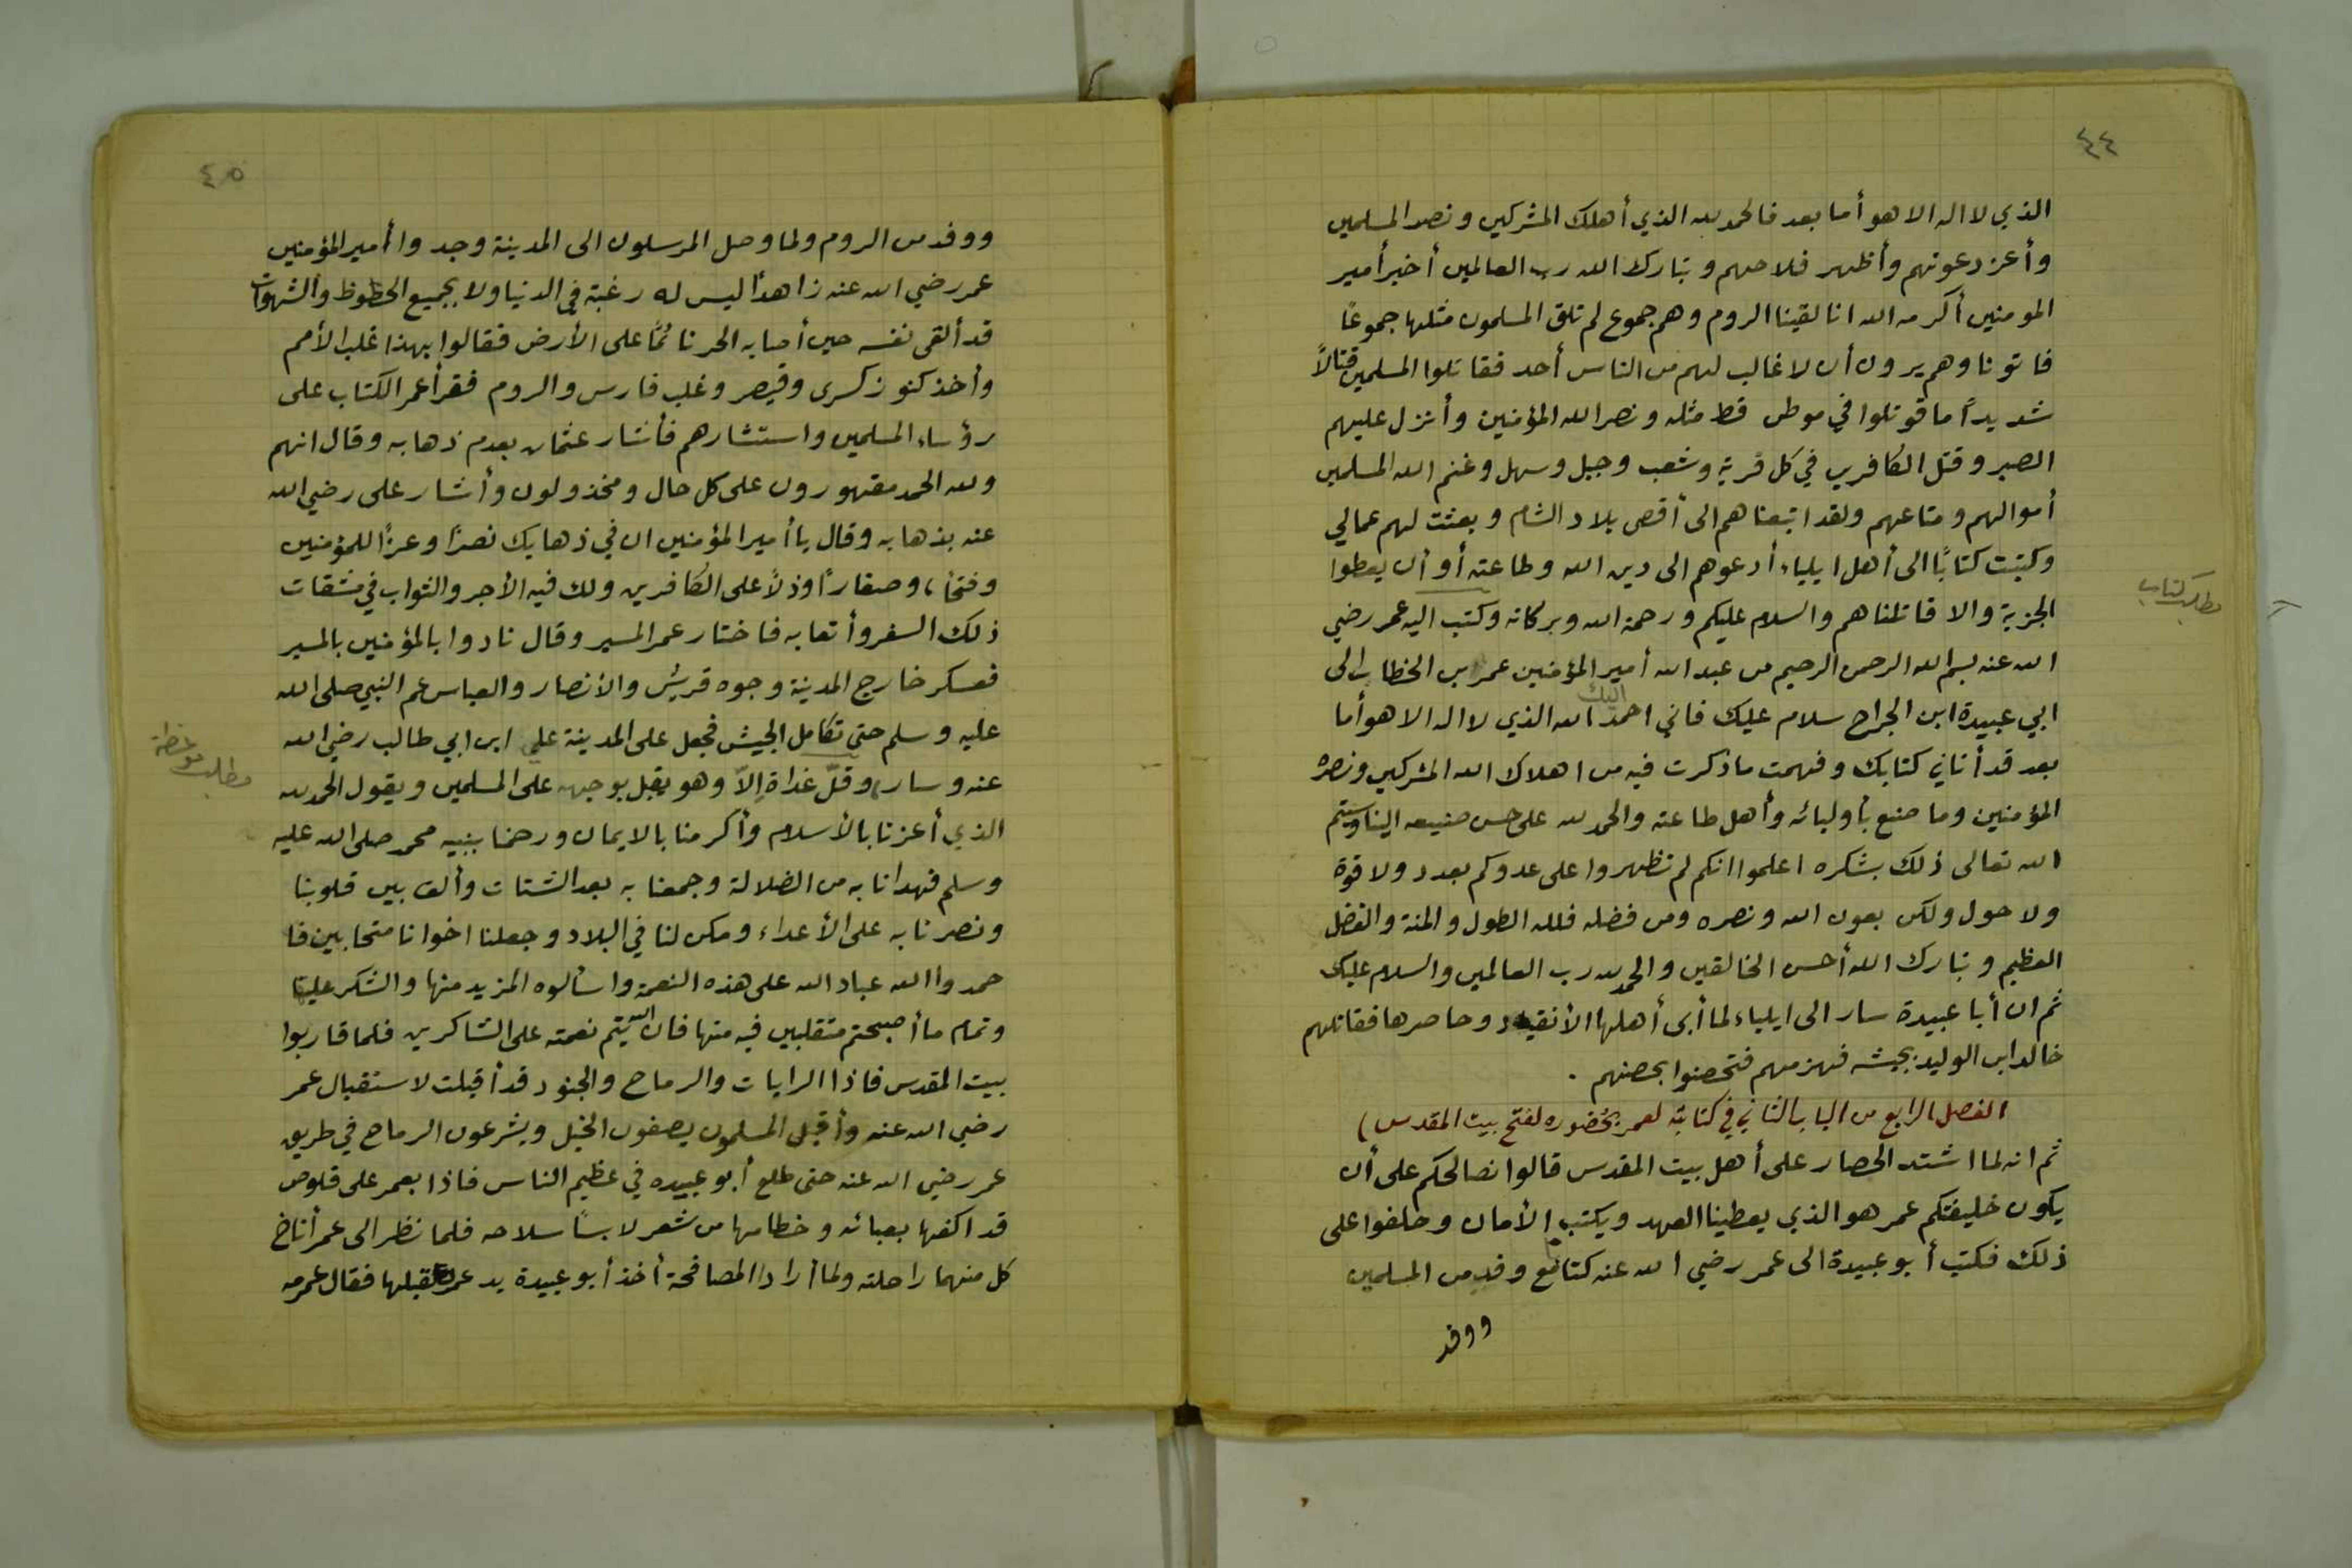 ٤٤
الذي لا اله الا هو أما بعد فالحمد لله الذي أهلك المشركين ونصر المسلمين
وأعز دعوتهم وأظهر فلاحهم وتبارك الله رب العالمين أخبر أمير
المومنين أكرمه الله انا لقينا الروم وهم جموع لم تلق المسلمون مثلها جموعًا
فاتونا وهم يرون أن لا غالب لهم من الناس أحد فقاتلوا المسلمين قتالًا
شديدًا ما قوتلوا في موطن قط مثله ونصر الله المؤمنين وأنزل عليهم
الصبر وقتل الكافرين في كل قرية وشعب وجبل وسهل وغنم الله المسلمين
أموالهم ومتاعهم ولقد اتبعناهم الى أقصى بلاد الشام وبعثت لهم عمالي
وكتبت كتابًا الى أهل ايلياء أدعوهم الى دين الله وطاعته أو أن يعطوا
مطلب كتاب
الجزية والا قاتلناهم والسلام عليكم ورحمة الله وبركاته وكتب اليه عمر رضي
الله عنه بسم الله الرحمن الرحيم من عبد الله أمير المؤمنين عمر ابن الخطاب الى
ابي عبيدة ابن الجراح سلام عليك فاني احمد اليك الله الذي لا اله الا هو أما
بعد قد أتاني كتابك وفهمت ما ذكرت فيه من اهلاك الله المشركين ونصره
المؤمنين وما صنع بأوليائه وأهل طاعته والحمد لله على حسن صنيعه الينا وسيتم
الله تعالى ذلك بشكره اعلموا انكم لم تظهروا على عدوكم بعدد ولا قوة
ولا حول ولكن بعون الله ونصره ومن فضله فلله الطول والمنة والفضل
العظيم وتبارك الله أحسن الخالقين والحمد لله رب العالمين والسلام عليك
ثم ان أبا عبيدة سار الى ايلياء لما أبى أهلها الأنقياد وحاصرها فقاتلهم
خالد ابن الوليد بجيشه فهزمهم فتحصنوا بحصنهم .
الفصل الرابع من الباب الثاني في كتابته لعمر بحضوره لفتح بيت المقدس )
ثم انه لما اشتد الحصار على أهل بيت المقدس قالوا نصالحكم على أن
يكون خليفتكم عمر هو الذي يعطينا العهد ويكتب الأمان وحلفوا على
ذلك فكتب أبو عبيدة الى عمر رضي الله عنه كتابًا مع وفد من المسلمين
ووفد
٤٥
ووفد من الروم ولما وصل المرسلون الى المدينة وجدوا أمير المؤمنين
عمر رضي الله عنه زاهدًا ليس له رغبة في الدنيا ولا بجميع الحظوظ والشهوات
قد ألقى نفسه حين أصابه الحر نائمًا على الأرض فقالوا بهذا غلب الأمم
وأخذ كنوز كسرى وقيصر وغلب فارس والروم فقرأ عمر الكتاب على
رؤساء المسلمين واستشارهم فأشار عثمان بعدم ذهابه وقال انهم
ولله الحمد مقهورون على كل حال ومخذولون وأشار على رضي الله
عنه بذهابه وقال يا أمير المؤمنين ان في ذهابك نصرًا وعزًا للمؤمنين
وفتحًا، وصغارًا وذلًا على الكافرين ولك فيه الأجر والثواب في مشقات
ذلك السفر وأتعابه فاختار عمر المسير وقال نادوا بالمؤمنين بالمسير
فعسكر خارج المدينة وجوه قريش والأنصار والعباس عم النبي صلى الله
عليه وسلم حتى تكامل الجيش فجعل على المدينة علي ابن ابي طالب رضي الله
مطلب موعظة
عنه وسار، وقلّ غداة إلاّ وهو يقبل بوجهه على المسلمين ويقول الحمد لله
الذي أعزنا بالأسلام وأكرمنا بالايمان ورحمنا بنبيه محمد صلى الله عليه
وسلم فهدانا به من الضلالة وجمعنا به بعد الشتات وألف بين قلوبنا
ونصرنا به على الأعداء ومكن لنا في البلاد وجعلنا اخوانا متحابين فا
حمدوا الله عباد الله على هذه النعمة واسألوه المزيد منها والشكر عليها
وتمام ما أصبحتم متقلبين فيه منها فان الله يتم نعمته على الشاكرين فلما قاربوا
بيت المقدس فاذا الرايات والرماح والجنود قد أقبلت لاستقبال عمر
رضي الله عنه وأقبل المسلمون يصفون الخيل ويشرعون الرماح في طريق
عمر رضي الله عنه حتى طلع أبو عبيده في عظيم الناس فاذا بعمر على قلوص
قد اكفها بعبائه وخطامها من شعر لابسًا سلاحه فلما نظر الى عمر أناخ
كل منهما راحلته ولما أرادا المصافحة أخذ أبو عبيدة يد عمر فقبلها فقال عمر مه